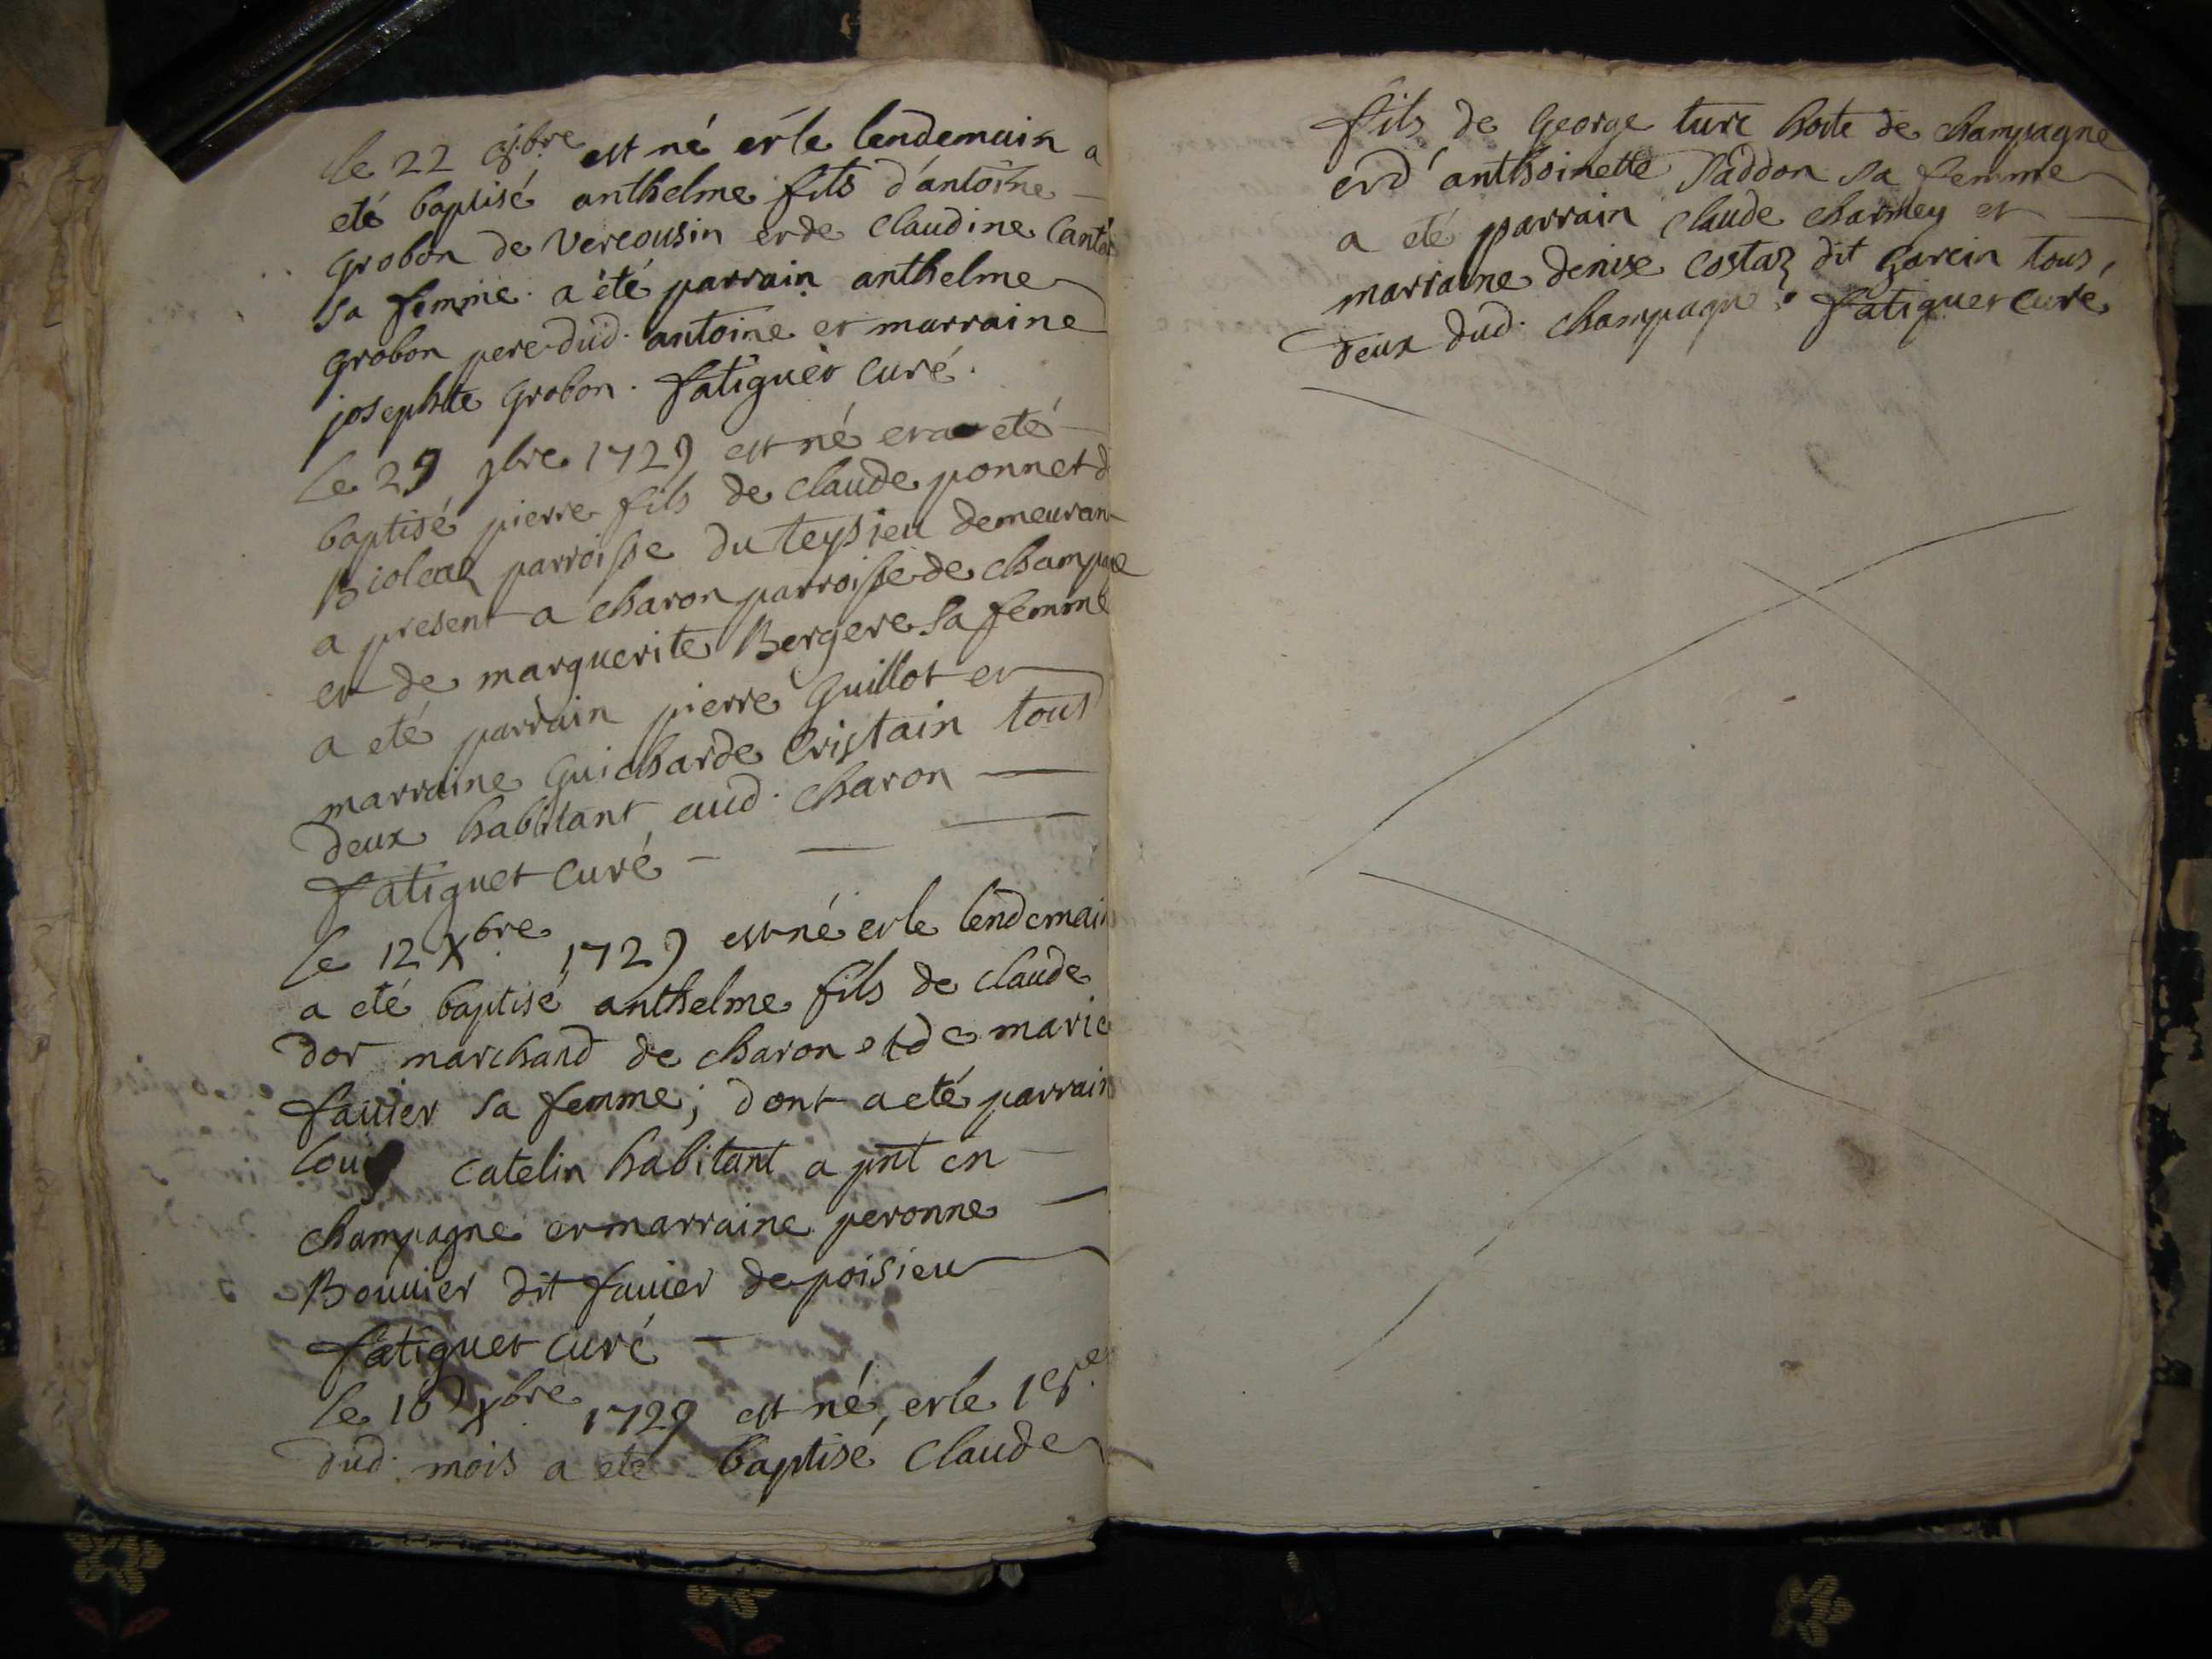 le 22 8bre est né et le lendemain a
eté baptisé anthelme fils d'antoine
grobon de Vercousin et de Claudine
sa femme. a été parrain anthelme
grobon pere dud. antoine et marraine
josephte grobon. fatiguet curé.
le 29 1729 est né et a eté
baptisé pierre fils de claude ponnet d
parroisse du teysieu demeurant
a present a charon parroisse de champagne
et de marguerite Bergere sa femme
a eté parrain pierre Guillot et
marraine Guicharde Cristain tous
deux habitant aud. charon
fatiguet curé
le 12 Xbre 1729 est né et le lendemain
a eté baptisé anthelme fils de claude
dor marchand de charon et de marie
fauier sa femme; dont a eté parrain
louis catelin habitant a pnt en
champagne et marraine peronne
Bouuier dit fauier de poisieu
fatiguet curé
le Xbre 1729 est né, et le
dud. mois a eté baptisé Claude
fils de George turc hoste de champagne
et d'anthoinette Paddon sa femme
a eté parrain claude charmey et
marraine denise costaz dit garcin tous
deux dud. champagne. fatiguet curé